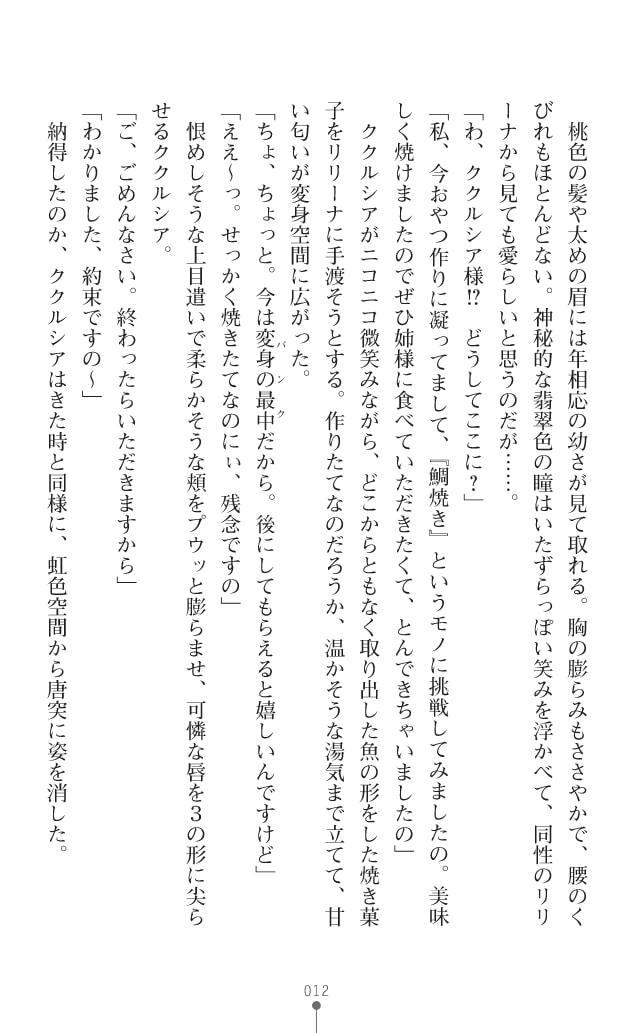 桃色の髪や太めの眉には年相応の幼さが見て取れる。胸の膨らみもささやかで、腰のく
びれもほとんどない。神秘的な翡翠色の瞳はいたずらっぽい笑みを浮かべて、同性のリリ
ーナから見ても愛らしいと思うのだが……。
「わ、ククルシア様!?　どうしてここに？」
「私、今おやつ作りに凝ってまして、『鯛焼き』というモノに挑戦してみましたの。美味
しく焼けましたのでぜひ姉様に食べていただきたくて、とんできちゃいましたの」
ククルシアがニコニコ微笑みながら、どこからともなく取り出した魚の形をした焼き菓
子をリリーナに手渡そうとする。作りたてなのだろうか、温かそうな湯気まで立てて、甘
い匂いが変身空間に広がった。
「ちょ、ちょっと。今は変身の最中だから。後にしてもらえると嬉しいんですけど」
バンク
「ええ～っ。せっかく焼きたてなのにぃ、残念ですの」
恨めしそうな上目遣いで柔らかそうな頬をプウッと膨らませ、可憐な唇を３の形に尖ら
せるククルシア。
「ご、ごめんなさい。終わったらいただきますから」
「わかりました、約束ですの～」
納得したのか、ククルシアはきた時と同様に、虹色空間から唐突に姿を消した。
012